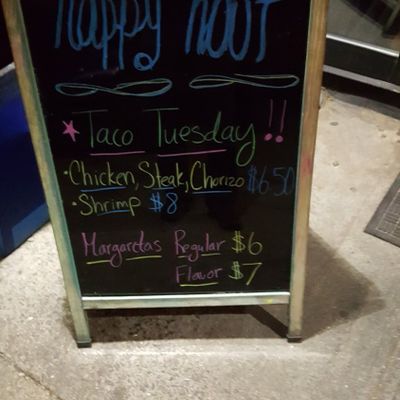 happy hour
Taco Tuesday!!
• Chicken, Steak, Chorizo $6.50
• Shrimp $8
Margaretas Regular $6
Flavor $7